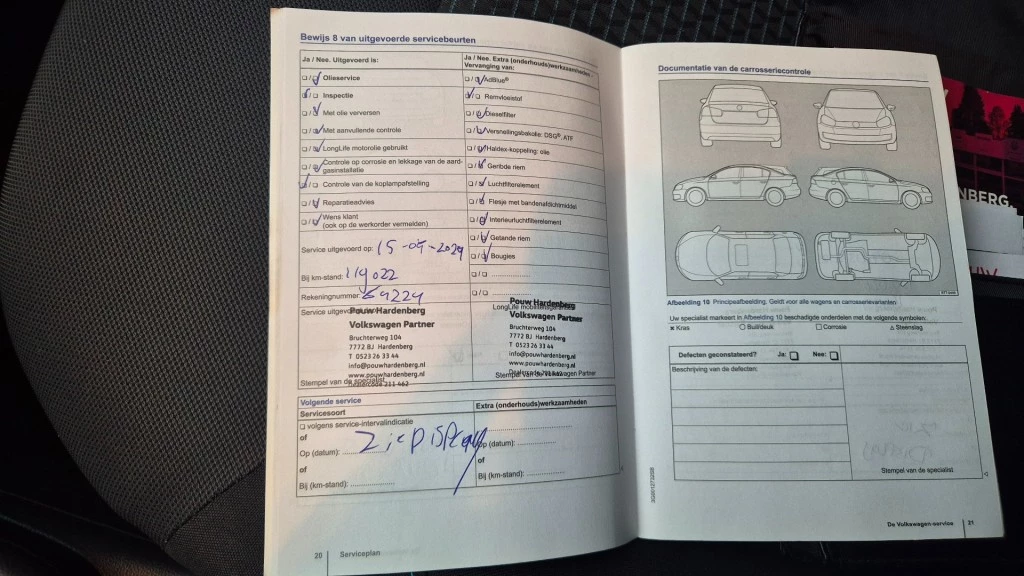 Bewijs 8 van uitgevoerde servicebeurten
Ja / Nee. Uitgevoerd is:
Ja / Nee. Extra (onderhouds)werkzaamheden - Vervanging van:
Olieservice
AdBlue®
Inspectie
Remvloeistof
Met olie verversen
Dieselfilter
Met aanvullende controle
Versnellingsbakolie: DSG®, ATF
LongLife motorolie gebruikt
Haldex-koppeling: olie
Controle op corrosie en lekkage van de aard-
gasinstallatie
Geribde riem
Controle van de koplampafstelling
Luchtfilterelement
Reparatieadvies
Flesje met bandenafdichtmiddel
Wens klant
(ook op de werkorder vermelden)
Interieurluchtfilterelement
Getande riem
Service uitgevoerd op:
Bougies
Bij km-stand: 119022
Rekeningnummer:
Service uitgevoerd
Pouw Hardenberg
Volkswagen Partner
Bruchterweg 104
7772 BJ Hardenberg
T 0523 26 33 44
info@pouwhardenberg.nl
www.pouwhardenberg.nl
Dealercode 211 462
Stempel van de specialist
LongLife
Pouw Hardenberg
Volkswagen Partner
Bruchterweg 104
7772 BJ Hardenberg
T 0523 26 33 44
info@pouwhardenberg.nl
www.pouwhardenberg.nl
Stempel van de Volkswagen Partner
Volgende service
Servicesoort
Extra (onderhouds)werkzaamheden
volgens service-intervalindicatie
of
Op (datum):
Op (datum):
of
of
Bij (km-stand):
Bij (km-stand):
20 Serviceplan
Documentatie van de carrosseriecontrole
Afbeelding 10 Principeafbeelding: Geldt voor alle wagens en carrosserievarianten.
Uw specialist markeert in Afbeelding 10 beschadigde onderdelen met de volgende symbolen:
Kras
Buil/deuk
Corrosie
Steenslag
Defecten geconstateerd? Ja: Nee:
Beschrijving van de defecten:
Stempel van de specialist
De Volkswagen-service 21
NBERG.